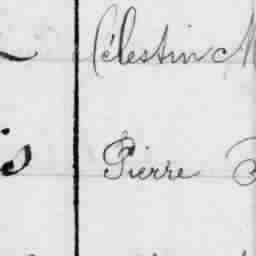 Célestin M
is
Pierre